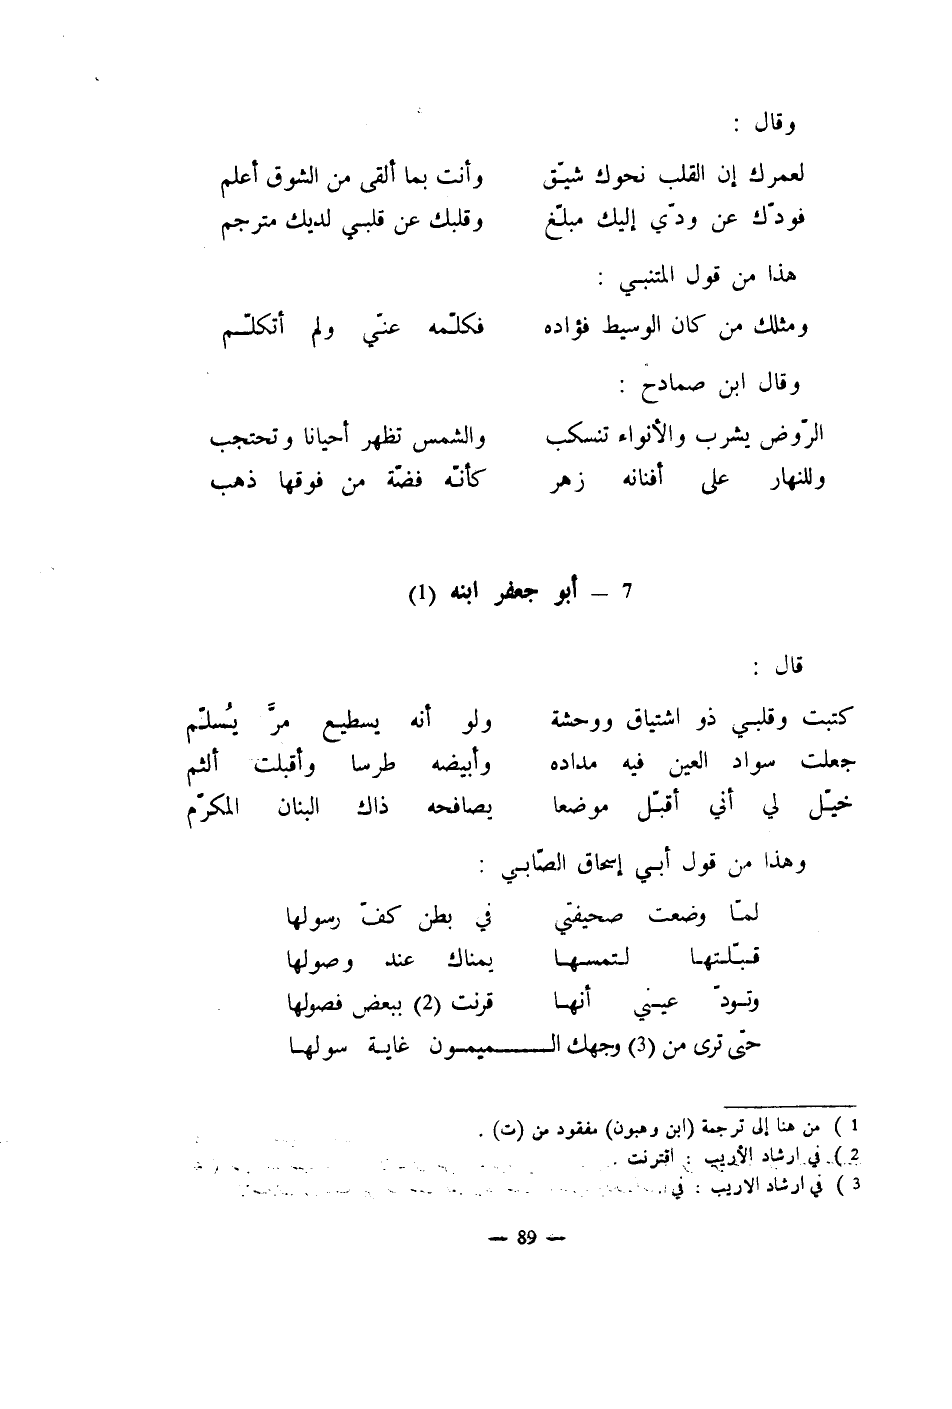 وقال :
لعمرك إن القلب نحوك شيّق وأنت بما ألقى من الشوق أعلم
فودّك عن ودّي إليك مبلّغ وقلبك عن قلبي لديك مترجم
هذا من قول المتنبي :
ومثلك من كان الوسيط فؤاده فكلّمه عنّي ولم أتكلّم
وقال ابن صمادح :
الرّوض يشرب والأنواء تنسكب والشمس تظهر أحيانا وتحتجب
وللنهار على أفنانه زهر كأنّه فضّة من فوقها ذهب
7 — أبو جعفر ابنه (1)
قال :
كتبت وقلبي ذو اشتياق ووحشة ولو أنه يسطيع مرَّ يُسلّم
جعلت سواد العين فيه مداده وأبيضه طرسا وأقبلت ألثم
خيّل لي أني أقبّل موضعا يصافحه ذاك البنان المكرّم
وهذا من قول أبي إسحاق الصّابي :
لمّا وضعت صحيفتي في بطن كفّ رسولها
قبّلتها لتمسها يمناك عند وصولها
وتودّ عيني أنها قرنت (2) ببعض فصولها
حتّى ترى من (3) وجهك الـميمون غاية سولها
1 ) من هنا إلى ترجمة (ابن وهبون) مفقود من (ت) .
2 ) في ارشاد الأريب : اقترنت .
3 ) في ارشاد الاريب : في .
— 89 —